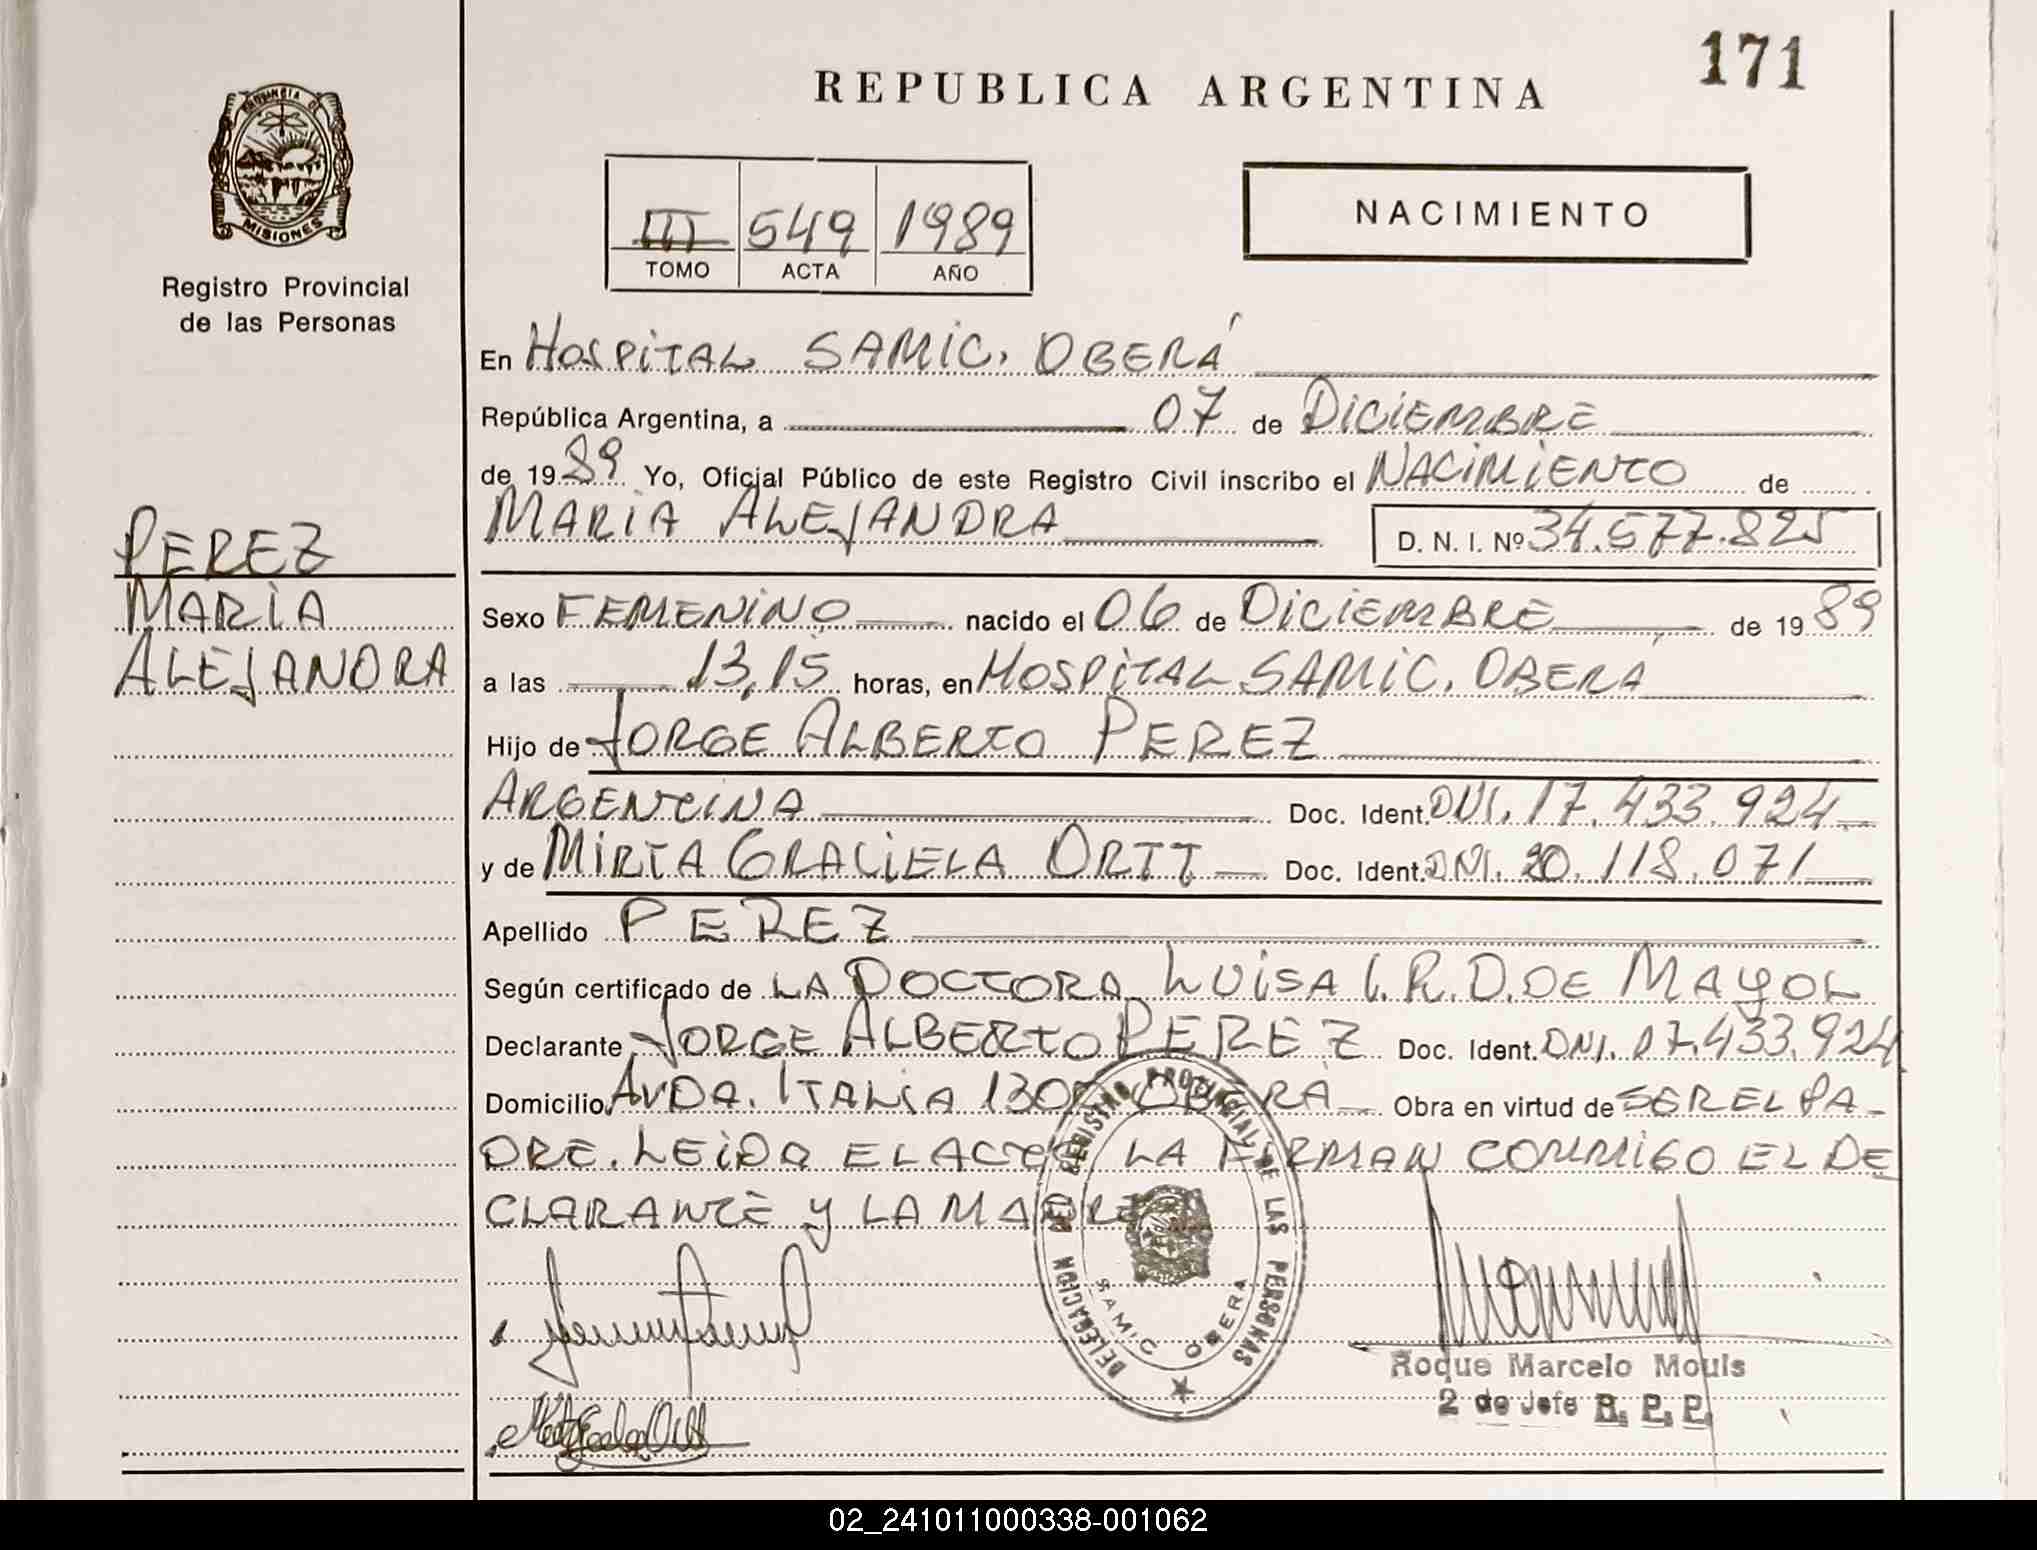 171
REPUBLICA ARGENTINA
PROVINCIA DE
MISIONES
Registro Provincial
de las Personas
III 549 1989
TOMO ACTA AÑO
NACIMIENTO
En HOSPITAL SAMIC. OBERÁ
República Argentina, a 07 de DICIEMBRE
de 1989 Yo, Oficial Público de este Registro Civil inscribo el NACIMIENTO de
MARIA ALEJANDRA D. N. I. Nº 34.577.825
PEREZ
MARIA
ALEJANDRA
Sexo FEMENINO nacido el 06 de DICIEMBRE de 1989
a las 13,15 horas, en HOSPITAL SAMIC. OBERÁ
Hijo de JORGE ALBERTO PEREZ
ARGENTINA Doc. Ident. DNI. 17.433.924
y de MIRTA GRACIELA ORTT Doc. Ident. DNI. 20.118.071
Apellido PEREZ
Según certificado de LA DOCTORA LUISA I. R. D. DE MAYOL
Declarante JORGE ALBERTO PEREZ Doc. Ident. DNI. 17.433.924
Domicilio AVDA. ITALIA OBERÁ Obra en virtud de SER EL PA-
DRE. LEIDA EL ACTA, LA FIRMAN CONMIGO EL DE
CLARANTE Y LA MADRE
DELEGACION DEL REGISTRO PROVINCIAL DE LAS PERSONAS
SAMIC OBERA
Roque Marcelo Mouls
2 do Jefe R. P. P.
02_241011000338-001062